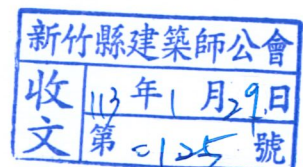 新竹縣建築師公會
收文
113年1月29日
第0125號